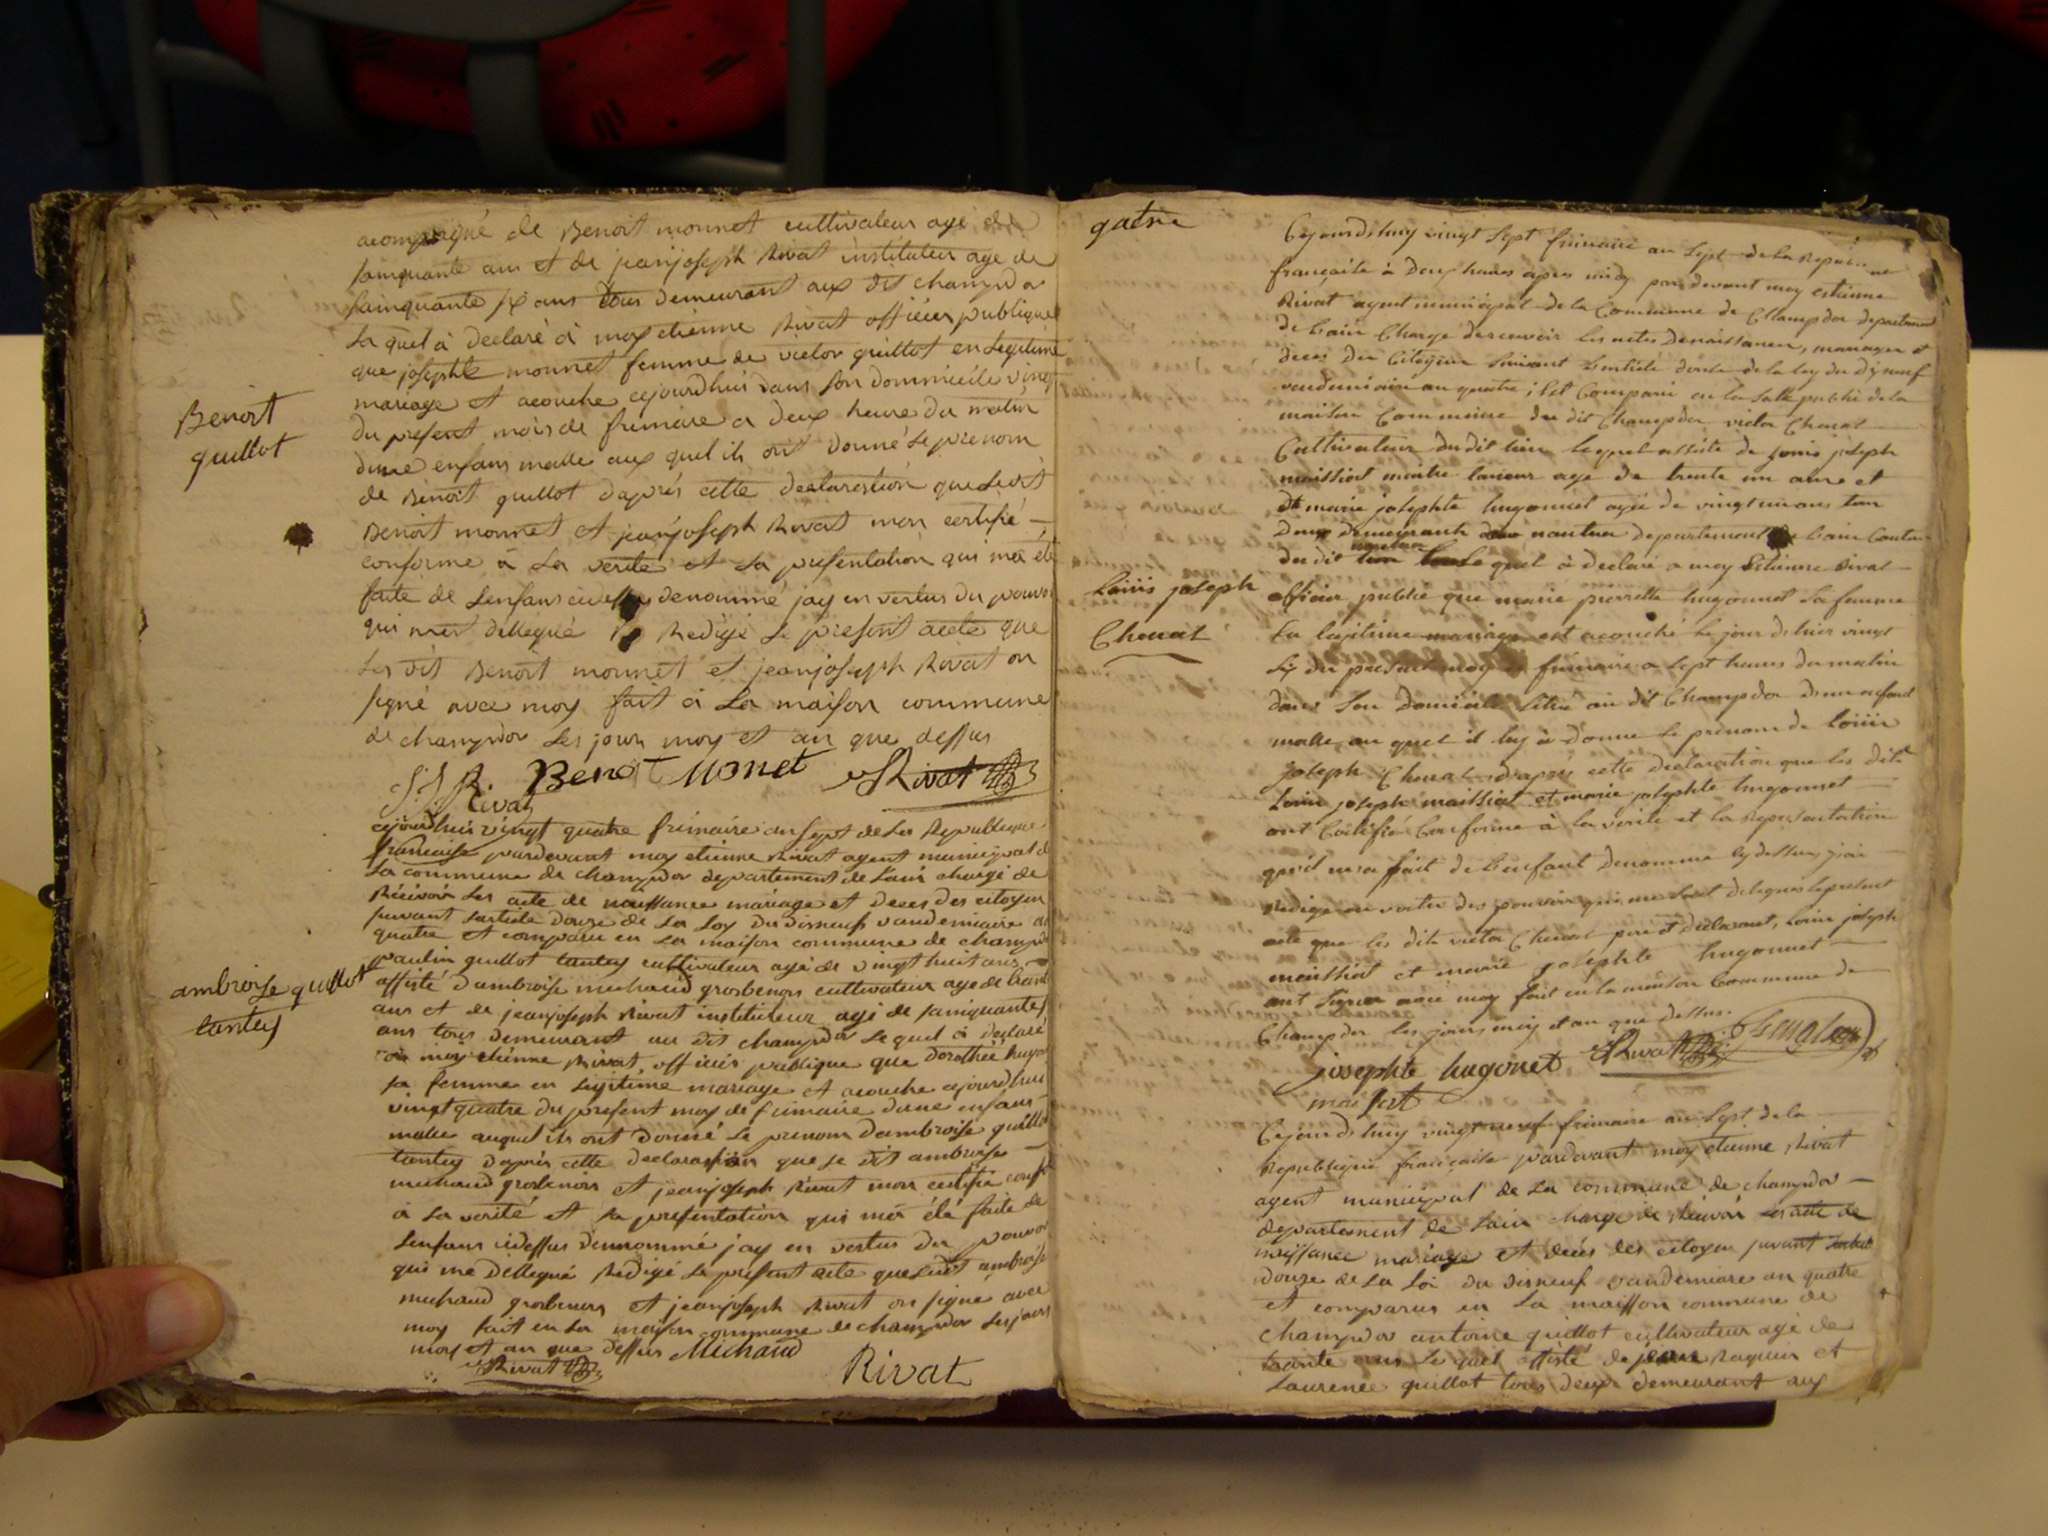 acompagné de Benoit monnet cultivateur agé de
sainquante ans et de jeanjoseph Rivat instituteur age de
sainquante six ans tous demeurant aux dit champdor
Le quel à declaré à moy etienne Rivat officier publique
que josephte monnet femme de victor guillot en Legitime
mariage et acouche cejourdhuis dans son dommicile vingt
du present mois de frimaire a deux heure du matin
dune enfans malle aux quel ils ont donné Le prenom
de Benoit guillot daprès cette declarastion que Ledit
Benoit monnet et jeanjoseph Rivat mon certifié
conforme à La verité et La presentation qui ma été
faite de Lenfans denommé jay en vertus du pouvoir
qui mest dellegué Redigé Le present acte que
Les dit Benoit monnet et jeanjoseph Rivat on
signé avec moy fait à La maison commune
de champdor Les jour moy et an que dessus
J.J. Rivat Benoit Monet Rivat
Benoit
guillot
cejourdhuis vingt quatre frimaire an sept de La Republique
francaise pardevant moy etienne Rivat agent municipal de
La commune de champdor departement de Lain chargé de
Recevoir Les acte de naissance mariage et deces des citoyen
suivant Larticle douze de La Loy du disneuf vandemiaire an
quatre et comparu en La maison commune de champdor
paulin guillot tantey cultivateur agé de vingt huit ans
assisté dambroise michaud grosbenoy cultivateur age de trante
ans et de jeanjoseph Rivat instituteur agé de sainquante
ans tous demeurant au dit champdor Le quel à declaré
à moy etienne Rivat officier publique que dorothée
sa femme en Legitime mariage et acouche cejourdhui
vingt quatre du present moy de frimaire dune enfans
malle auquel ils ont donné Le prenom dambroise guillot
tantey daprès cette declarastion que Le dit ambroise
michaud grosbenoy et jeanjoseph Rivat mon certifie conf
à La verité et La presentation qui ma été faite de
Lenfans cidessus dennommé jay en vertus du pouvoir
qui ma dellegué Redigé Le present acte que Ledit ambroise
michaud grosbenoy et jeanjoseph Rivat on signé avec
moy fait en La maison commune de champdor Les jours
moy et an que dessus Michaud
Rivat Rivat
ambroise guillot
tantey
gatre
Cejourdshuy vingt sept frimaire an sept de la Republique
française à deux heures apres midy par devant moy estienne
Rivat agent municipal de la Commune de Champdor departement
de Lain Charge de recevoir les actes de naissances, mariages et
deces des Citoyen suivant Larticle douze de la loy du dix neuf
vendemiaire an quatre; Est Comparu en la salle public de la
maison Commune du dit Champdor victor Chenat
Cultivateur du dit lieu lequel assiste de Louis joseph
maissiat maitre age de trente un ans et
de marie josephte hugonnet agée de vingt un ans tous
deux demeurants nantua departement de Lain Canton
du dit Lequel à declaré a moy Estienne Rivat
officier public que marie pierrette hugonnet sa femme
En legitime mariage est acouché le jour dhier vingt
six du present moy de frimaire a sept heures du matin
dans son domicile situé au dit Champdor dun enfant
malle au quel il luy à donne le prenom de Louis
joseph Chenat d'après cette declaration que les dits
Louis joseph maissiat et marie josephte hugonnet
ont Certifié Conforme à la verité et la Representation
qu'il ma fait de Lenfant denommé cy dessus, j'ai
Redigé en vertu des pouvoir qui me sont delegués le present
acte que les dits victor Chenat pere et declarant, Louis joseph
maissiat et marie josephte hugonnet
ont signer avec moy fait en la maison Commune de
Champdor les jours moy et an que dessus.
josephte hugonet Rivat
maissiat
Louis joseph
Chenat
Cejourdshuy vingt neuf frimaire an sept de la
Republique française pardevant moy etienne Rivat
agent municipal de La commune de champdor
departement de Lain charge de Recevoir Les acte de
naissance mariage et deces des citoyen suivant Larticle
douze de La Loi du disneuf vandemiare an quatre
et comparus en La maisson commune de
champdor antoine guillot cultivateur agé de
trante ans Le quel assisté de jean Raquin et
Laurence guillot tous deux demeurant aux